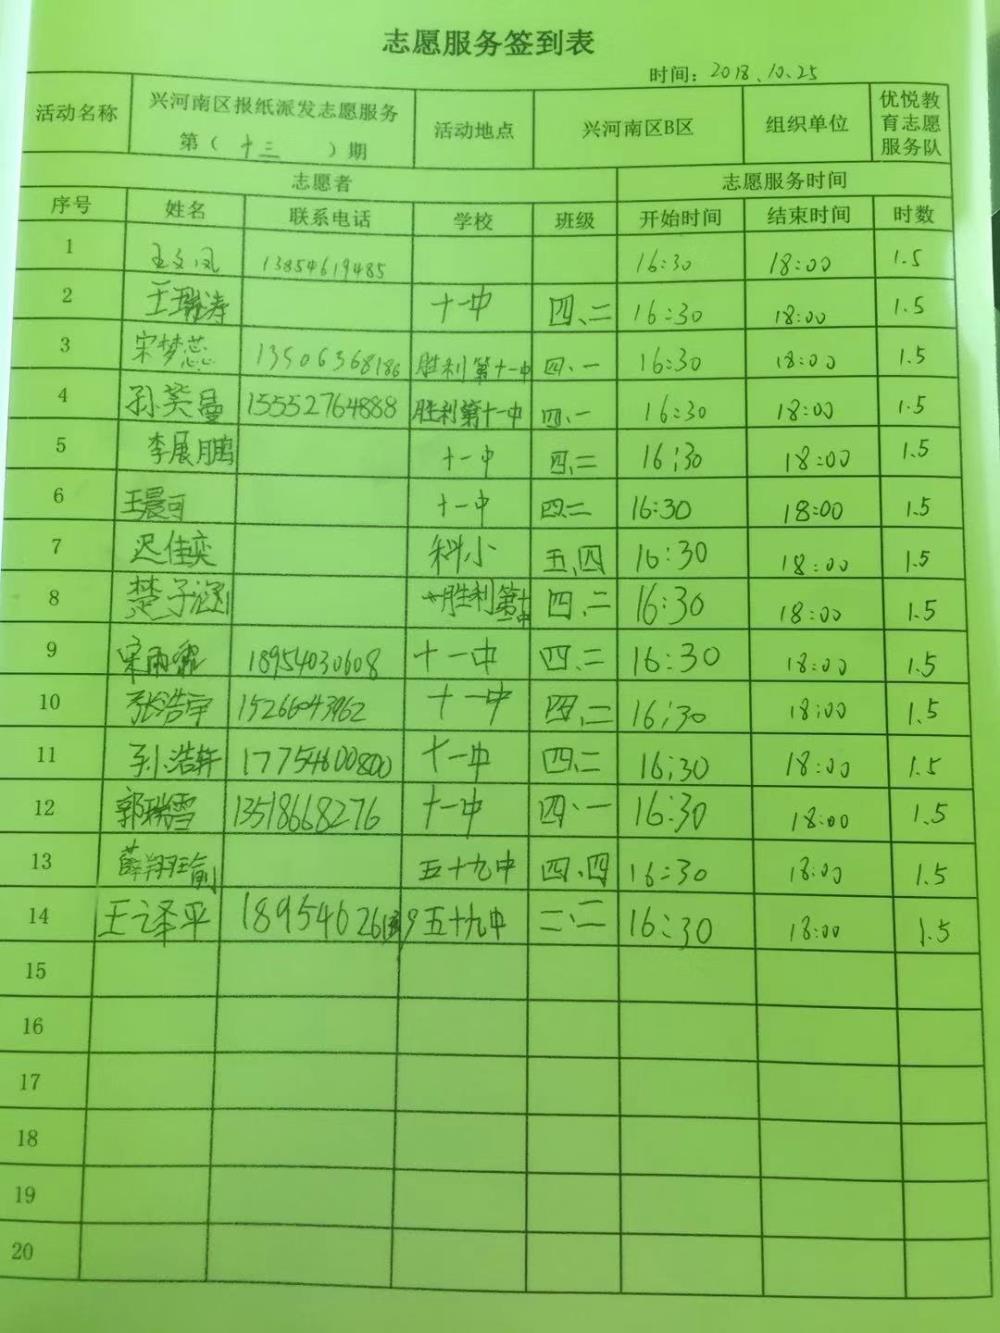 志愿服务签到表
时间：2018.10.25
活动名称 兴河南区报纸派发志愿服务 第（十三）期 活动地点 兴河南区B区 组织单位 优悦教育志愿服务队
志愿者 志愿服务时间
序号 姓名 联系电话 学校 班级 开始时间 结束时间 时数
1 王文凤 13854619485 16:30 18:00 1.5
2 王瑞涛 十一中 四、二 16:30 18:00 1.5
3 宋梦蕊 13506368186 胜利第十一中 四、一 16:30 18:00 1.5
4 孙 曼 15552764888 胜利第十一中 四、一 16:30 18:00 1.5
5 李展鹏 十一中 四、二 16:30 18:00 1.5
6 王晨可 十一中 四、二 16:30 18:00 1.5
7 迟佳奕 科小 五、四 16:30 18:00 1.5
8 楚子涵 胜利第十一中 四、二 16:30 18:00 1.5
9 宋雨 18954030608 十一中 四、二 16:30 18:00 1.5
10 张浩宇 15266043962 十一中 四、二 16:30 18:00 1.5
11 孙浩轩 17754600800 十一中 四、二 16:30 18:00 1.5
12 郭瑞雪 13518668276 十一中 四、一 16:30 18:00 1.5
13 薛翔 五十九中 四、四 16:30 18:00 1.5
14 王译平 五十九中 二、二 16:30 18:00 1.5
15
16
17
18
19
20